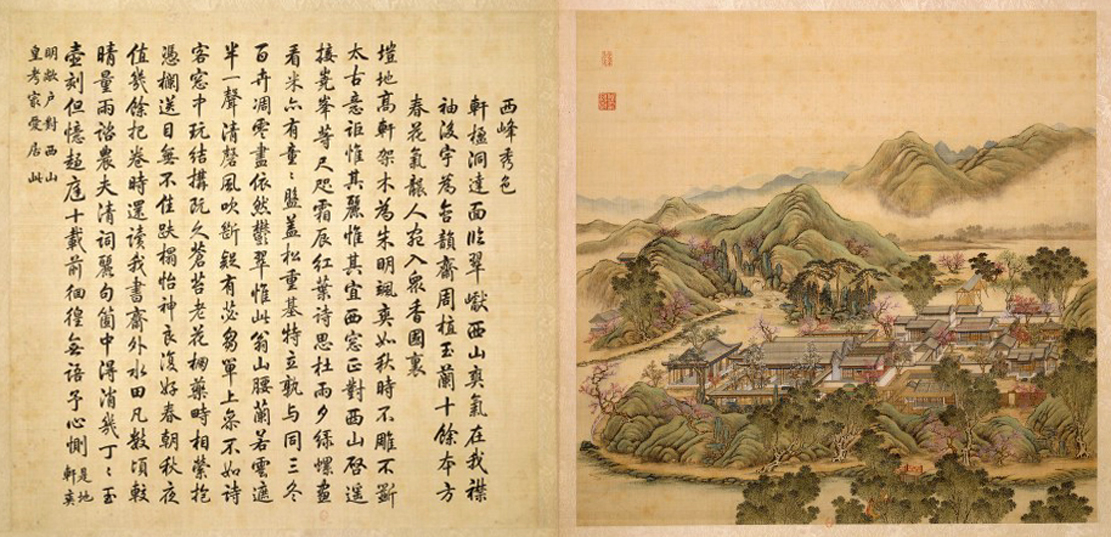 西峰秀色
軒楹洞達面臨翠巘西山爽氣在我襟
袖後宇為含韻齋周植玉蘭十餘本方
春花氣襲人宛入衆香國裏
塏地高軒架木為朱明颯爽如秋時不雕不斵
太古意詎惟其麗惟其宜西窓正對西山啓遥
接嶤峯等尺咫霜辰紅葉詩思杜雨夕綠螺畫
看米亦有童〻盤蓋松重基特立孰與同三冬
百卉凋零盡依然欝翠惟此翁山腰蘭若雲遮
半一聲清磬風吹斷疑有苾芻單上參不如詩
客窓中玩結搆既久蒼苔老花棚藥畤相縈抱
憑欄送目無不佳趺榻怡神良復好春朝秋夜
值幾餘把卷時還讀我書齋外水田凡數頃較
晴量雨諮農夫清詞麗句箇中得消幾丁〻玉
壺刻但憶趨庭十載前徊徨無語予心惻
是地
軒爽
明敞户對西山
皇考冣愛居此